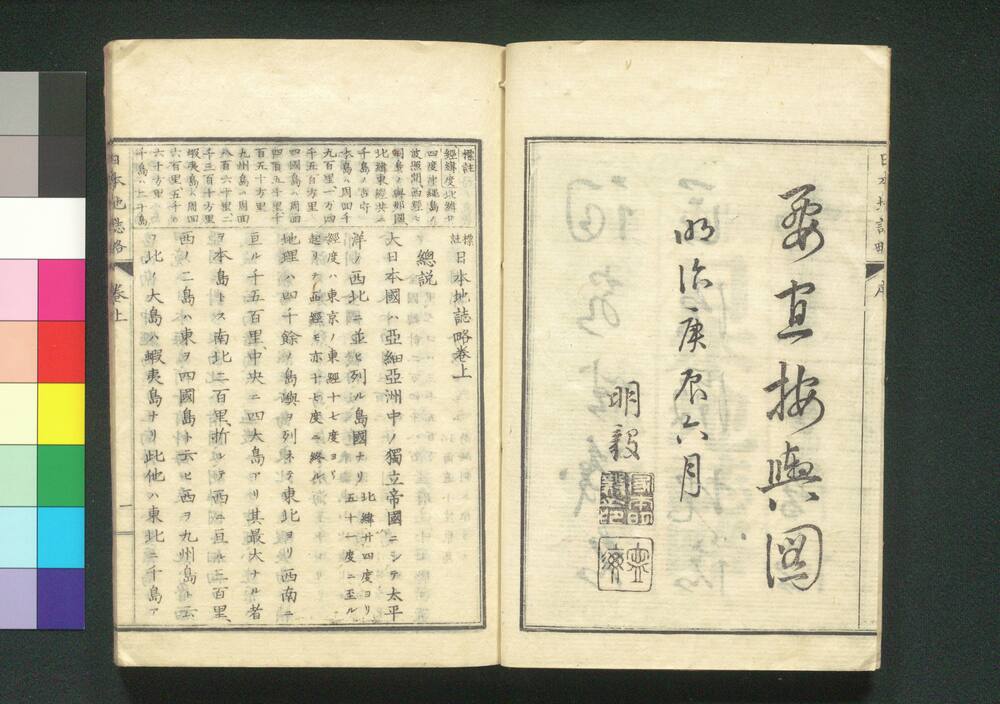 要宜按輿圖
明治庚辰六月
明毅
標註
日本地誌略卷上
總説
大日本國ハ亞細亞洲中ノ獨立帝國ニシテ太平
洋ノ西北ニ並ビ列ル島國ナリ北緯廿四度ヨリ五十一度ニ至ル
經度ハ東京ノ東經十七度ヨリ起リテ西經モ亦十七度ニ終ル
地理ハ四千餘ノ島嶼ヲ列ネテ東北ヨリ西南ニ
亘ル千五百里、中央ニ四大島アリ其最大ナル者
ヲ本島トス南北二百里、折レテ西ニ亘ル三百里、
西ノ二島ハ東ヲ四國島ト云ヒ西ヲ九州島ト云
フ北ノ大島ハ蝦夷島ナリ此他ハ東北ニ千島ア
標註
經緯度北緯廿
四度沖繩島ノ
波照間西經ハ
同島ノ與那國
北緯東經共ニ
千島ノ占守
本島ハ周回千
九百里一万四
千五百方里
四國島ハ周回
四百五十里千
百五十方里
九州島ハ周回
八百六十里二
千三百十方里
蝦夷島ハ周回
六百里五千
六十方里
千島ハ三十島
日本地誌略
卷上
一